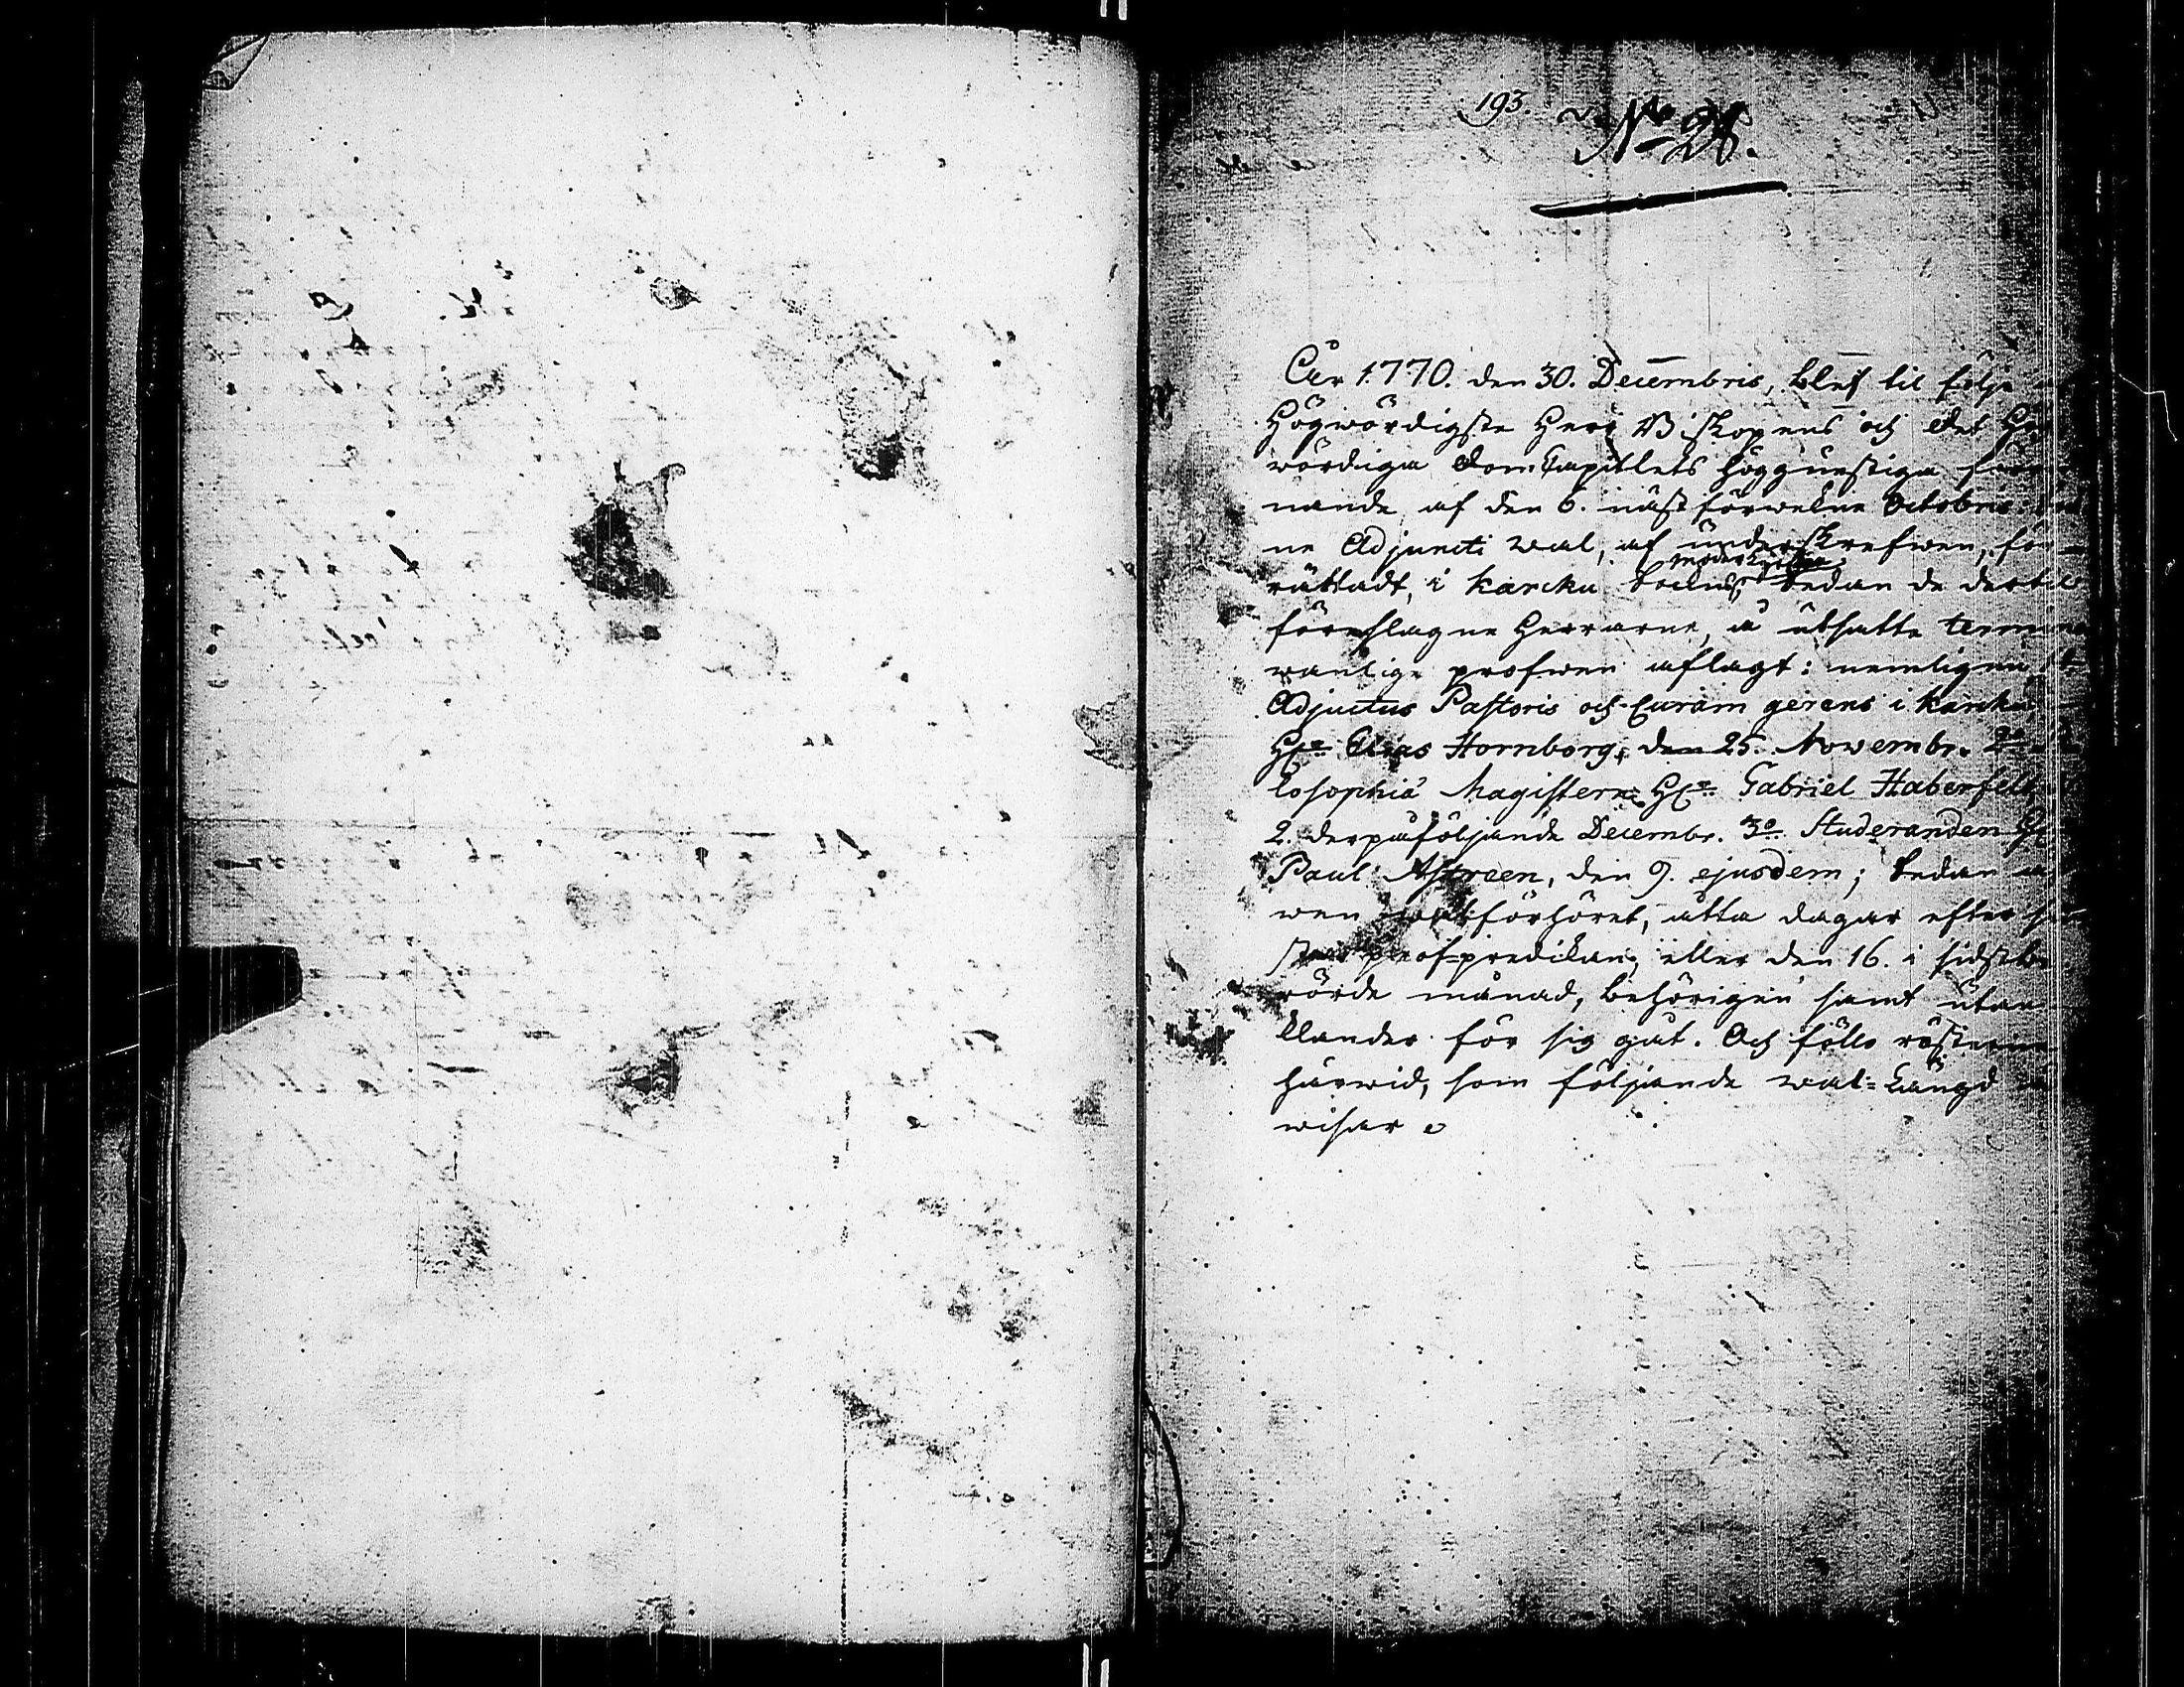 193.
No 28.
År 1770. den 30. Decembris, blef til följe
Högwördigste Herr Biskopens och det Hög
wördiga Dom Capitlets höggunstiga för
nande af den 6. näst förwekne Octobris
ne Adjuncti wal, af underskrefwen, för
moderkyrkan
rättadt, i Karcku Sockns, sedan de dertil
föreslagne Herrarne, å utsatte termine
wanlige profwen aflagt: nemligen
Adjunctus Pastoris och Curam gerens i Karcku,
Hr Elias Hornborg, den 25. Novembr. 2o
losophiæ Magistern Hr Gabriel Haberfelt,
2. derpåföljande Decembr. 3o Studeranden Hr
Paul Astraen, den 9. ejusdem; sedan
wen walförhöret, åtta dagar efter
prof-predikan, eller den 16. i sidstbe
rörde månad, behörigen samt utan
klander för sig gåt. Och föllo rösterne
härwid, som följande wal-Längd
wisar